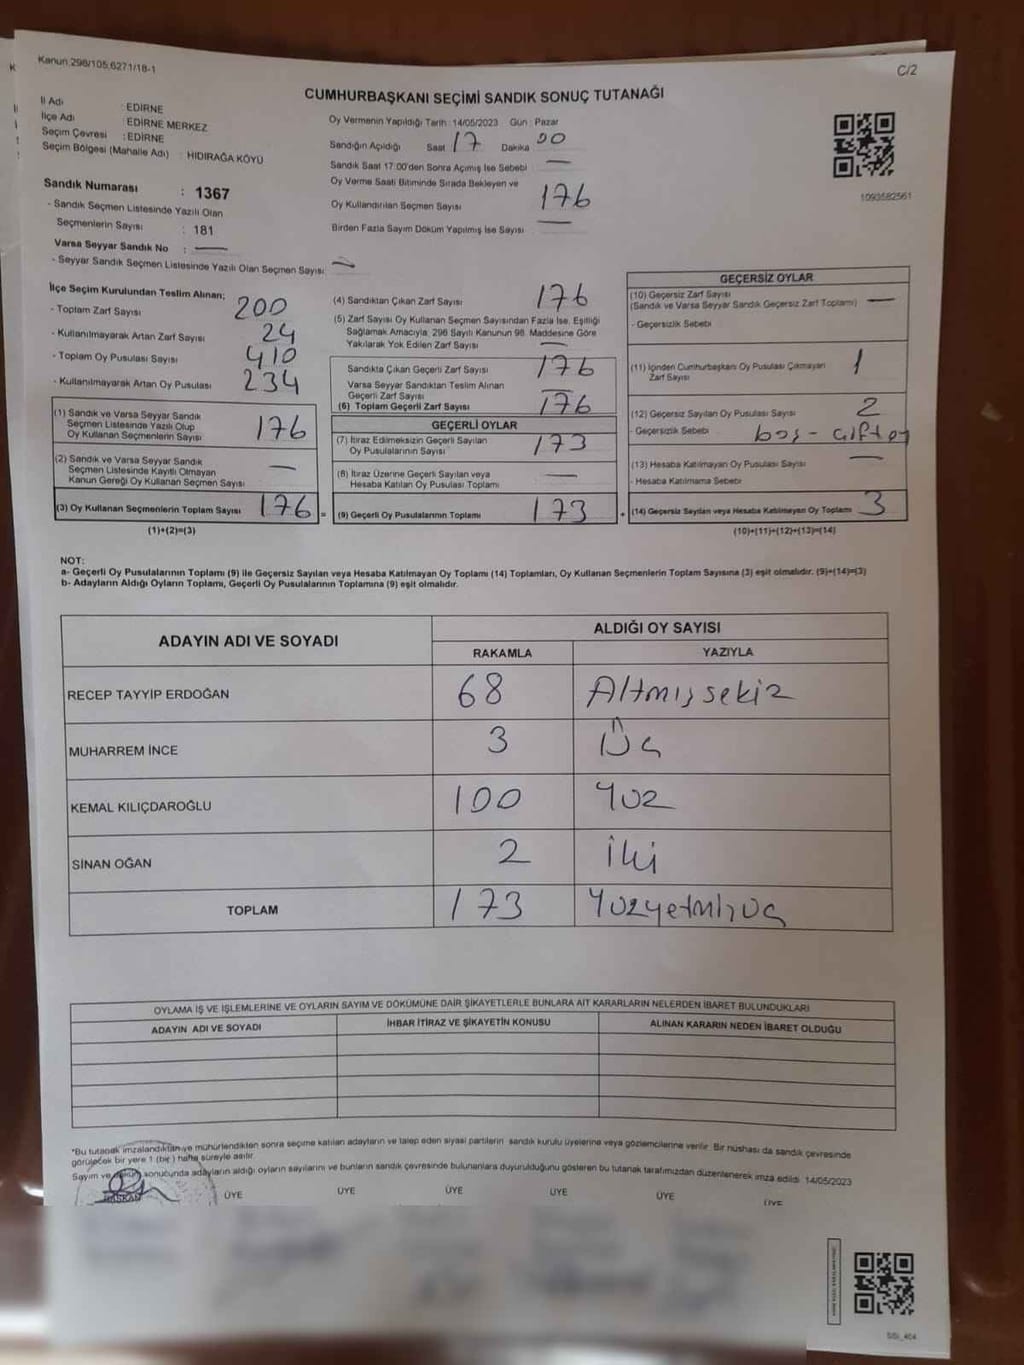 Kanun 298/105,6271/18-1
C/2
CUMHURBAŞKANI SEÇİMİ SANDIK SONUÇ TUTANAĞI
İl Adı : EDİRNE
İlçe Adı : EDİRNE MERKEZ
Seçim Çevresi : EDİRNE
Seçim Bölgesi (Mahalle Adı) : HIDIRAĞA KÖYÜ
Sandık Numarası : 1367
- Sandık Seçmen Listesinde Yazılı Olan
Seçmenlerin Sayısı : 181
Varsa Seyyar Sandık No : —
- Seyyar Sandık Seçmen Listesinde Yazılı Olan Seçmen Sayısı: —
Oy Vermenin Yapıldığı Tarih : 14/05/2023 Gün : Pazar
Sandığın Açıldığı Saat 17 Dakika 00
Sandık Saat 17:00'den Sonra Açımış İse Sebebi —
Oy Verme Saati Bitiminde Sırada Bekleyen ve
Oy Kullandırılan Seçmen Sayısı 176
Birden Fazla Sayım Döküm Yapılmış İse Sayısı —
1093582561
İlçe Seçim Kurulundan Teslim Alınan;
- Toplam Zarf Sayısı 200
- Kullanılmayarak Artan Zarf Sayısı 24
- Toplam Oy Pusulası Sayısı 410
- Kullanılmayarak Artan Oy Pusulası 234
(1) Sandık ve Varsa Seyyar Sandık
Seçmen Listesinde Yazılı Olup
Oy Kullanan Seçmenlerin Sayısı 176
(2) Sandık ve Varsa Seyyar Sandık
Seçmen Listesinde Kayıtlı Olmayan
Kanun Gereği Oy Kullanan Seçmen Sayısı —
(3) Oy Kullanan Seçmenlerin Toplam Sayısı 176 =
(1)+(2)=(3)
(4) Sandıktan Çıkan Zarf Sayısı 176
(5) Zarf Sayısı Oy Kullanan Seçmen Sayısından Fazla İse, Eşitliği
Sağlamak Amacıyla, 298 Sayılı Kanunun 98. Maddesine Göre
Yakılarak Yok Edilen Zarf Sayısı —
Sandıkta Çıkan Geçerli Zarf Sayısı 176
Varsa Seyyar Sandıktan Teslim Alınan
Geçerli Zarf Sayısı —
(6) Toplam Geçerli Zarf Sayısı 176
GEÇERLİ OYLAR
(7) İtiraz Edilmeksizin Geçerli Sayılan
Oy Pusulalarının Sayısı 173
(8) İtiraz Üzerine Geçerli Sayılan veya
Hesaba Katılan Oy Pusulası Toplamı —
(9) Geçerli Oy Pusulalarının Toplamı 173 +
GEÇERSİZ OYLAR
(10) Geçersiz Zarf Sayısı
(Sandık ve Varsa Seyyar Sandık Geçersiz Zarf Toplamı) —
- Geçersizlik Sebebi
(11) İçinden Cumhurbaşkanı Oy Pusulası Çıkmayan
Zarf Sayısı 1
(12) Geçersiz Sayılan Oy Pusulası Sayısı 2
- Geçersizlik Sebebi boş - çift oy
(13) Hesaba Katılmayan Oy Pusulası Sayısı —
- Hesaba Katılmama Sebebi
(14) Geçersiz Sayılan veya Hesaba Katılmayan Oy Toplamı 3
(10)+(11)+(12)+(13)=(14)
NOT:
a- Geçerli Oy Pusulalarının Toplamı (9) ile Geçersiz Sayılan veya Hesaba Katılmayan Oy Toplamı (14) Toplamları, Oy Kullanan Seçmenlerin Toplam Sayısına (3) eşit olmalıdır. (9)+(14)=(3)
b- Adayların Aldığı Oyların Toplamı, Geçerli Oy Pusulalarının Toplamına (9) eşit olmalıdır.
ADAYIN ADI VE SOYADI
ALDIĞI OY SAYISI
RAKAMLA YAZIYLA
RECEP TAYYİP ERDOĞAN 68 Altmışsekiz
MUHARREM İNCE 3 Üç
KEMAL KILIÇDAROĞLU 100 Yüz
SİNAN OĞAN 2 İki
TOPLAM 173 Yüzyetmişüç
OYLAMA İŞ VE İŞLEMLERİNE VE OYLARIN SAYIM VE DÖKÜMÜNE DAİR ŞİKAYETLERLE BUNLARA AİT KARARLARIN NELERDEN İBARET BULUNDUKLARI
ADAYIN ADI VE SOYADI İHBAR İTİRAZ VE ŞİKAYETİN KONUSU ALINAN KARARIN NEDEN İBARET OLDUĞU
*Bu tutanak imzalandıktan ve mühürlendikten sonra seçime katılan adayların ve talep eden siyasi partilerin sandık kurulu üyelerine veya gözlemcilerine verilir. Bir nüshası da sandık çevresinde
görülecek bir yere 1 (bir) hafta süreyle asılır.
Sayım ve döküm sonucunda adayların aldığı oyların sayılarını ve bunların sandık çevresinde bulunanlara duyurulduğunu gösteren bu tutanak tarafımızdan düzenlenerek imza edildi. 14/05/2023
BAŞKAN ÜYE ÜYE ÜYE ÜYE ÜYE ÜYE